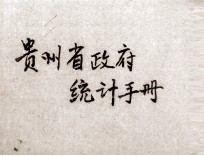 贵州省政府
统计手册